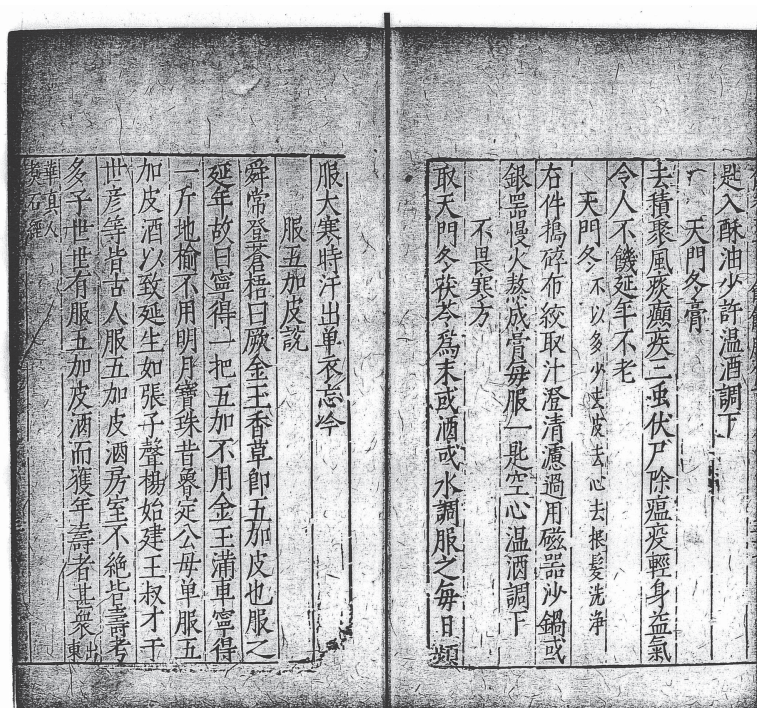 匙入酥油少許温酒調下
天門冬膏
去積聚風痰癲疾三虫伏尸除瘟疫輕身益氣
令人不饑延年不老
天門冬 不以多少去皮去心去根髮洗浄
右件搗碎布絞取汁澄清濾過用磁器沙鍋或
銀器慢火熬成膏每服一匙空心温酒調下
不畏寒方
取天門冬茯苓爲末或酒或水調服之每日頻
服大寒時汗出单衣忘冷
服五加皮説
舜常登蒼梧曰厥金玉香草即五加皮也服之
延年故曰寧得一把五加不用金玉滿車寧得
一斤地榆不用明月寶珠昔魯定公母单服五
加皮酒以致延生如張子聲楊始建王叔才于
世彦等皆古人服五加皮酒房室不絶皆壽考
多子世世有服五加皮酒而獲年壽者甚衆 出東
華真人
煑石經